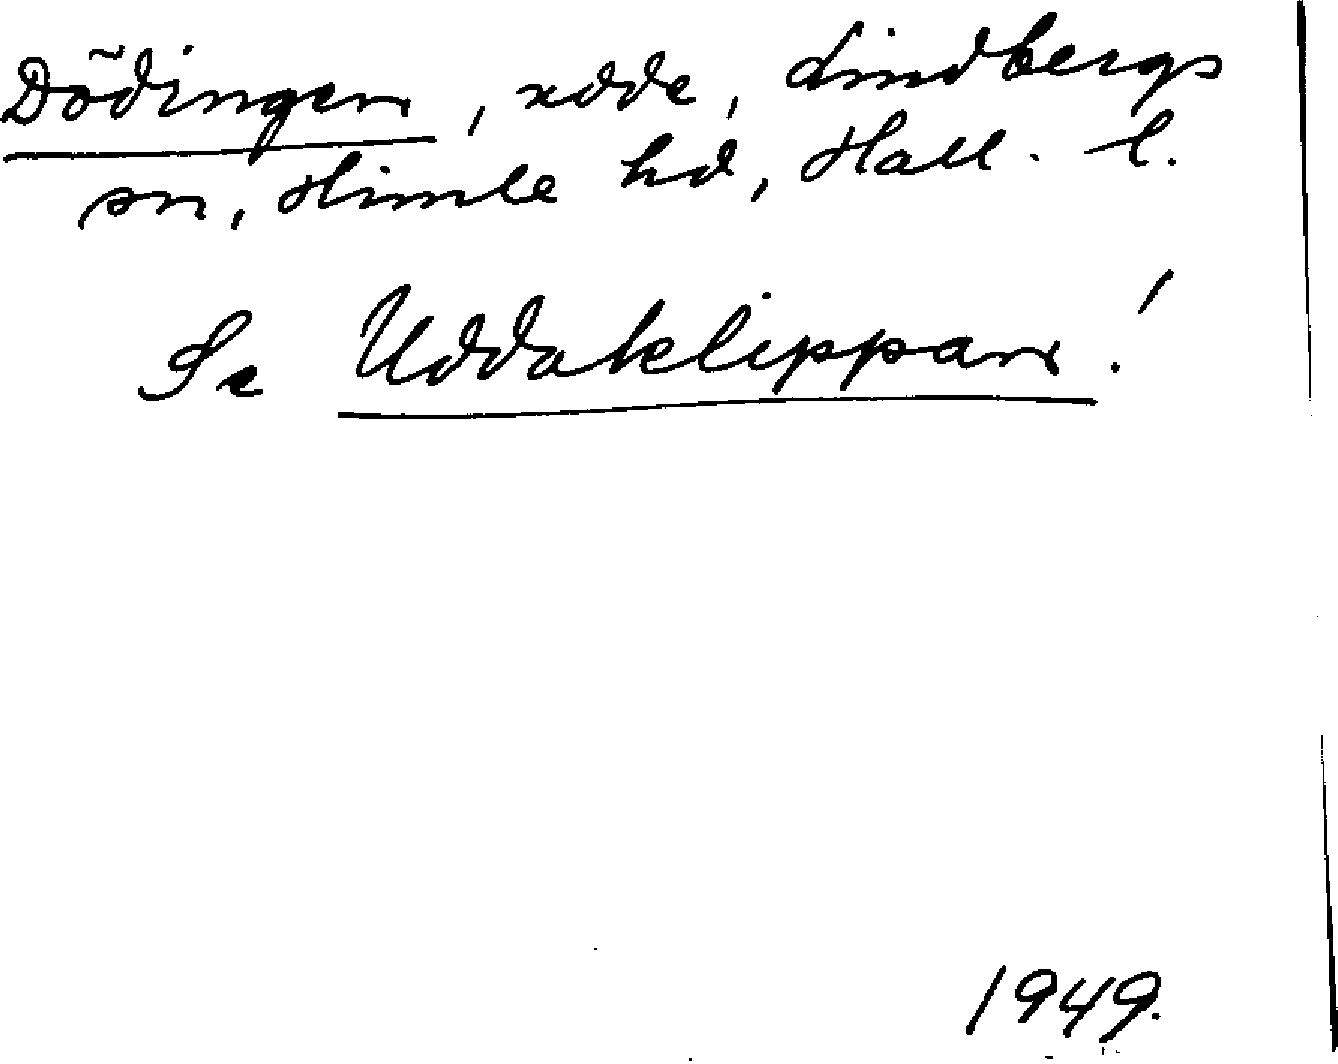 Dödingen, udde, Lindbergs
sn, Himle hd, Hall. l.
Se Uddaklippan!
1949.